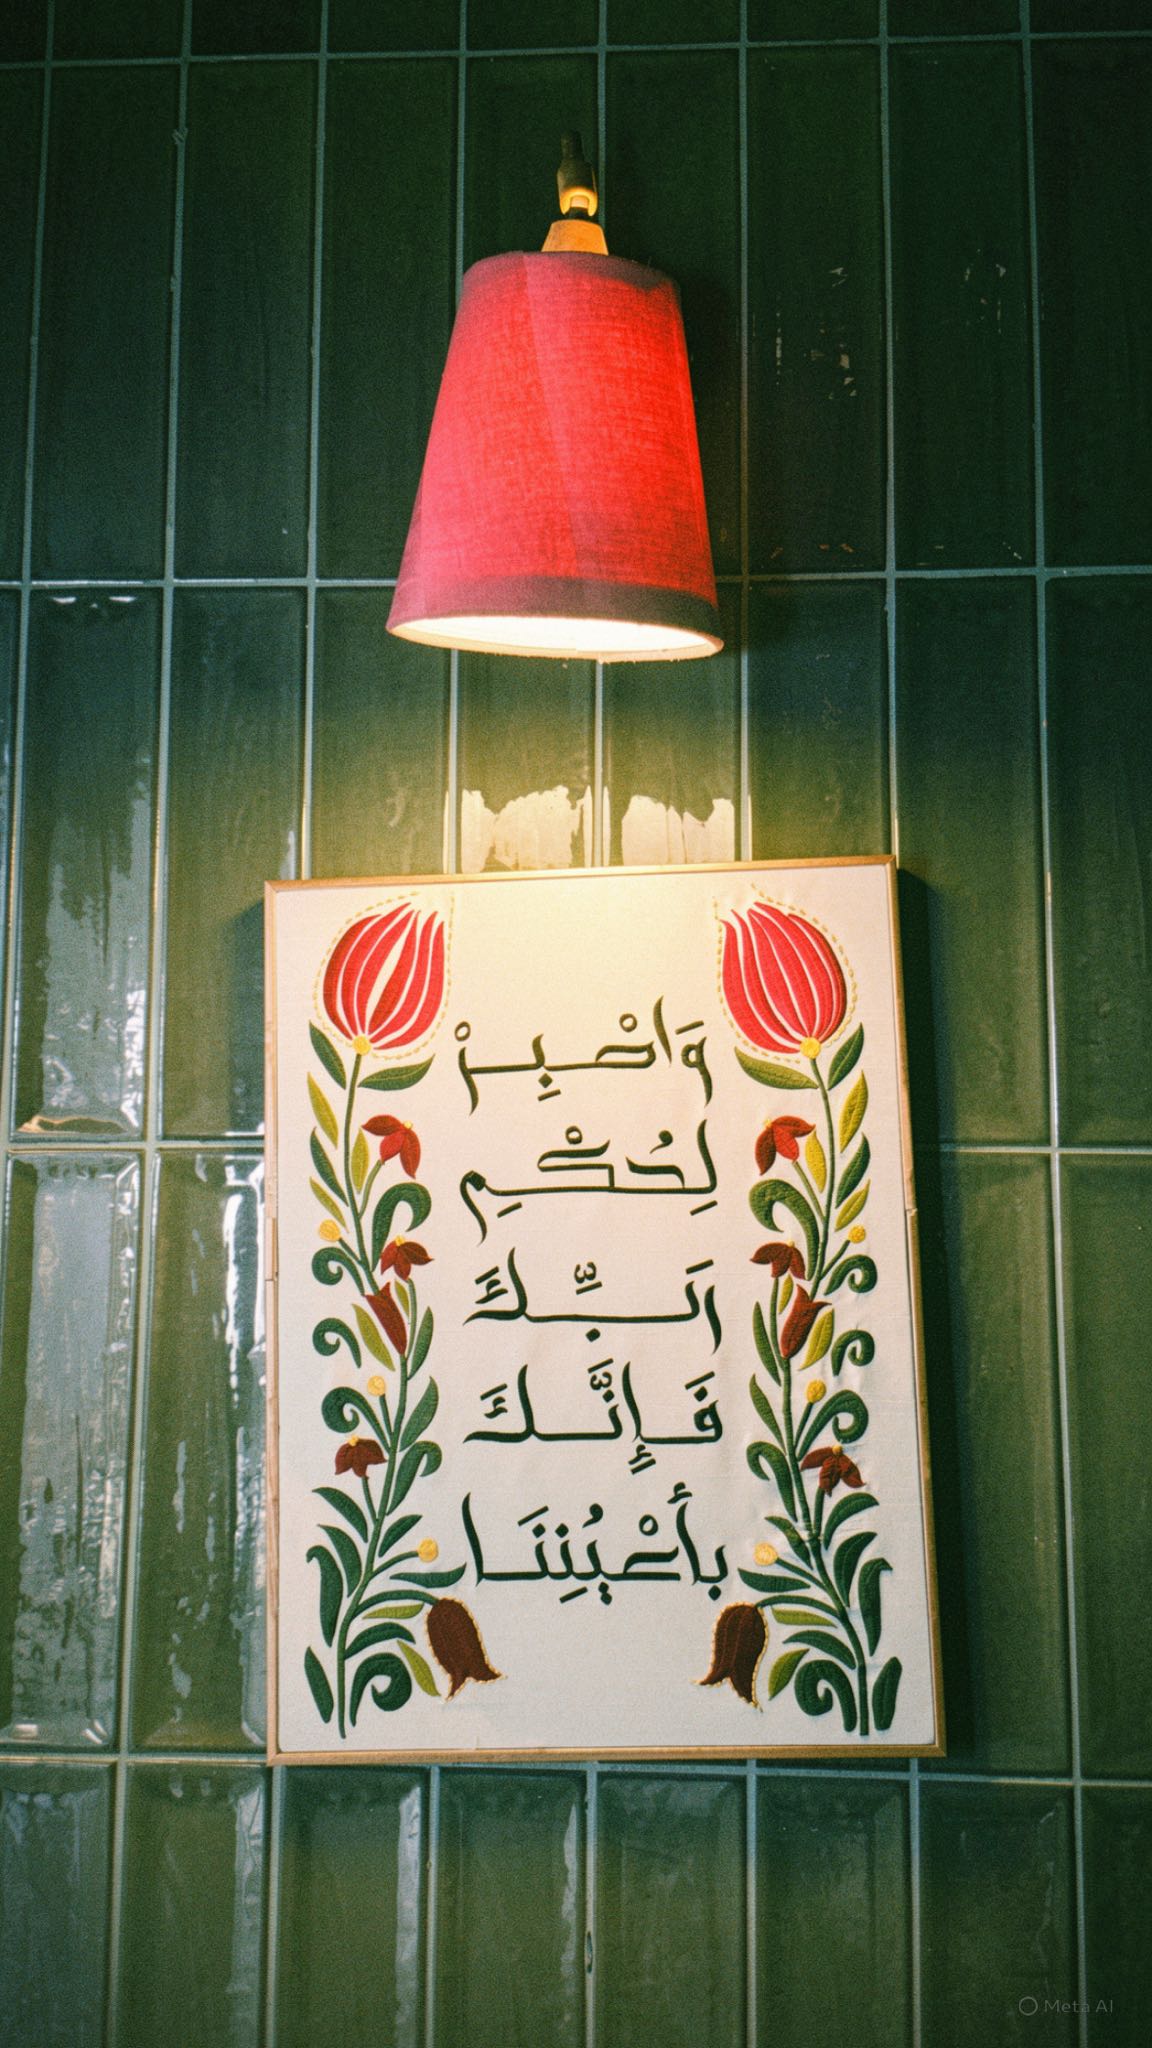 وَاصْبِرْ
لِحُكْمِ
رَبِّكَ
فَإِنَّكَ
بِأَعْيُنِنَا
Meta AI